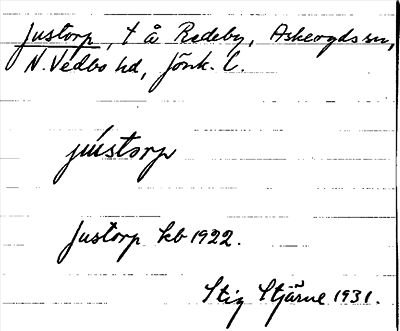 Justorp, t å Redeby, Askeryds sn,
N. Vedbo hd, Jönk. l.
jùstorp
Justorp kb 1922.
Stig Stjärne 1931.